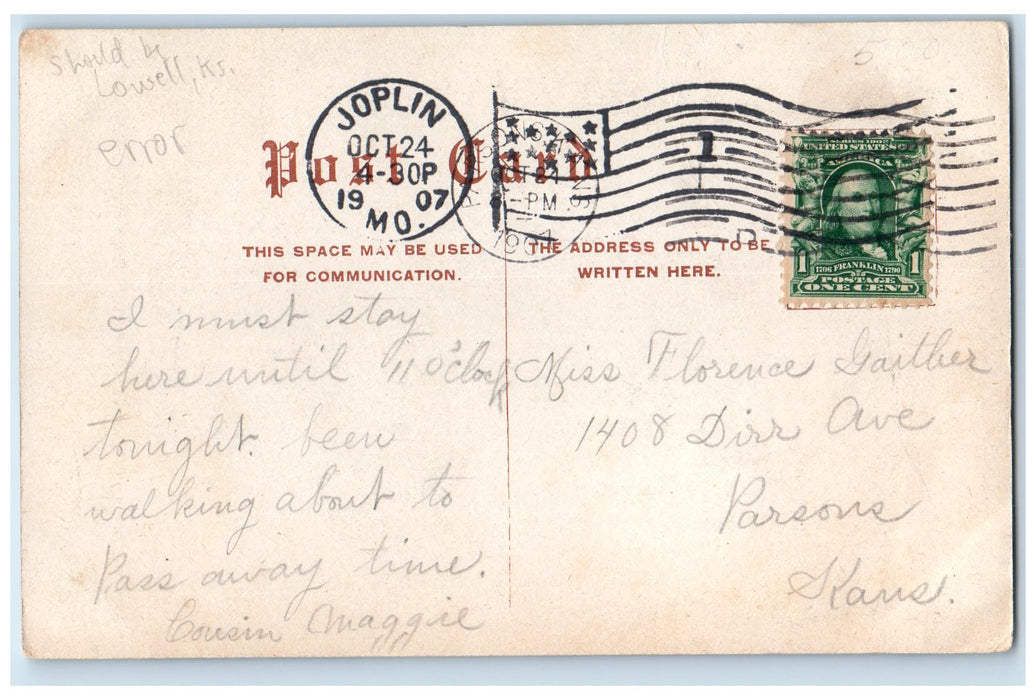 Should be
Lowell, Ks.
error
Post Card
JOPLIN
OCT 24
4-30P
19 07
MO.
PARSONS
OCT 24
-PM
1907
1
SERIES 1902
UNITED STATES OF
AMERICA
1
1706 FRANKLIN 1790
1
POSTAGE
ONE CENT
THIS SPACE MAY BE USED
FOR COMMUNICATION.
THE ADDRESS ONLY TO BE
WRITTEN HERE.
I must stay
here until 11 o'clock
tonight. been
walking about to
Pass away time.
Cousin Maggie
Miss Florence Gaither
1408 Dirr Ave
Parsons
Kans.